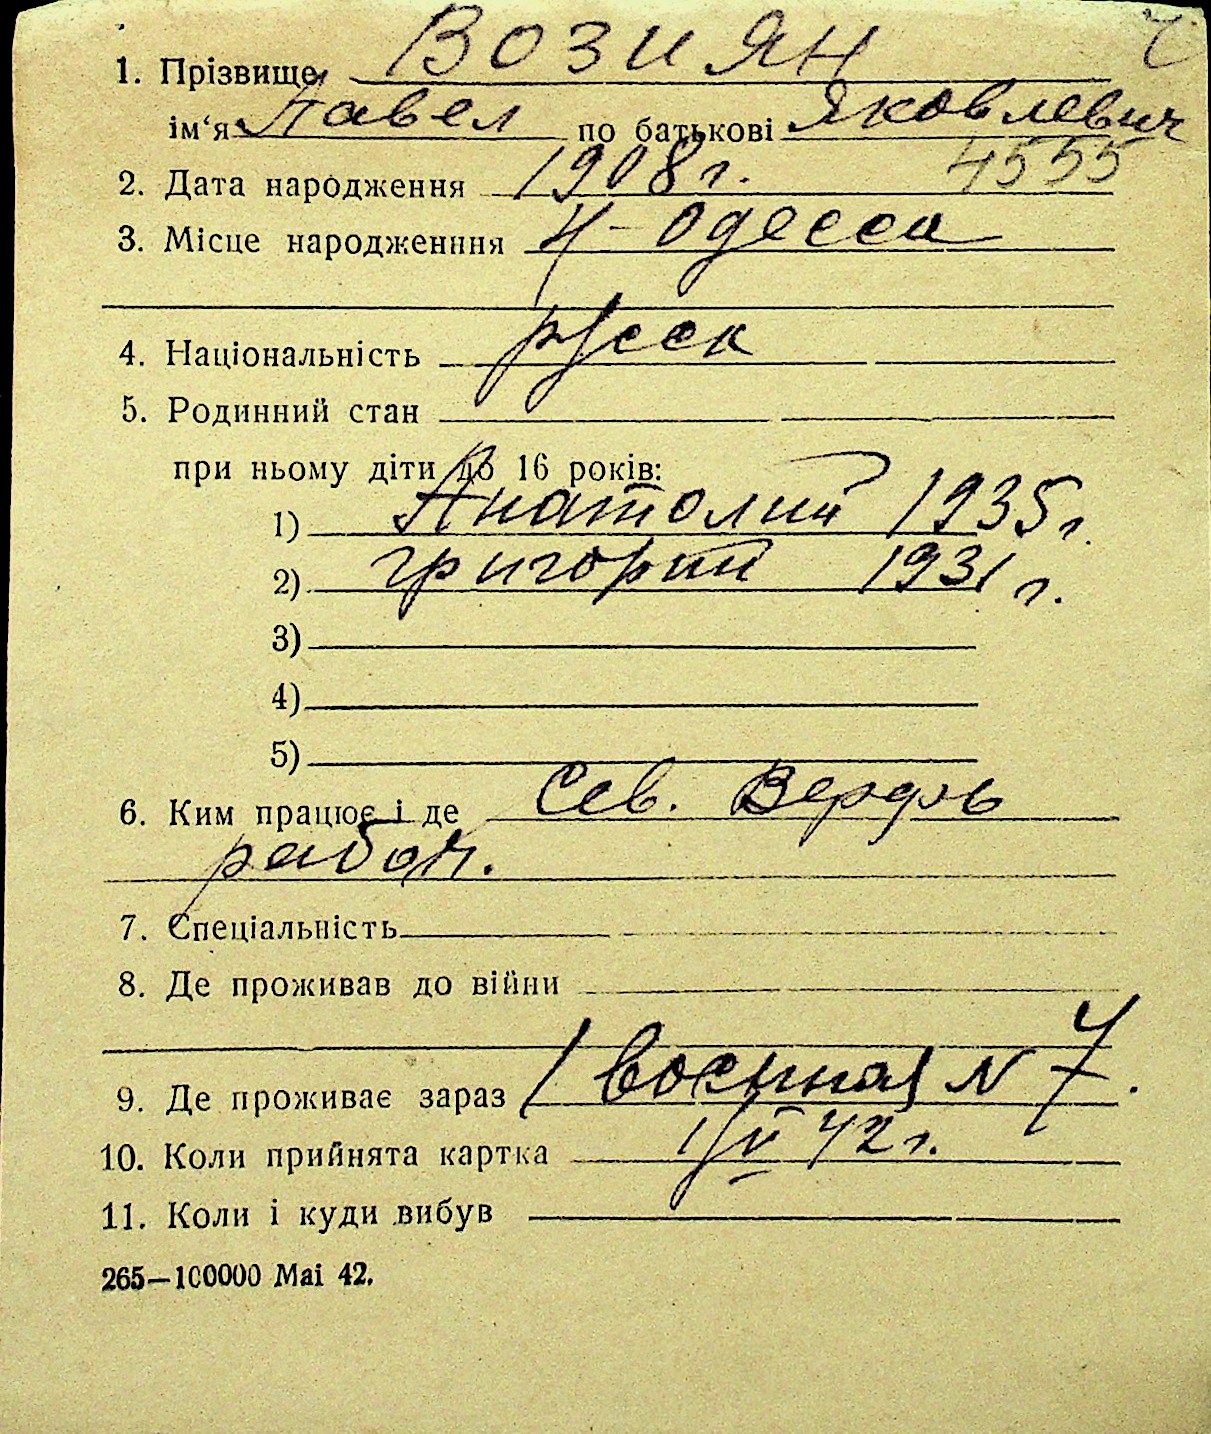 1. Прізвище ВОЗИЯН
ім‘я Павел по батькові Яковлевич
4555
2. Дата народження 1908 г.
3. Місце народженння Одесса
4. Національність русск
5. Родинний стан
при ньому діти до 16 років:
1) Анатолий 1935 г.
2) григорий 1931 г.
3)
4)
5)
6. Ким працює і де Сев. Верфь
рабоч.
7. Спеціальність
8. Де проживав до війни
9. Де проживає зараз 1 военная N 7.
10. Коли прийнята картка 42 г.
11. Коли і куди вибув
265—100000 Mai 42.